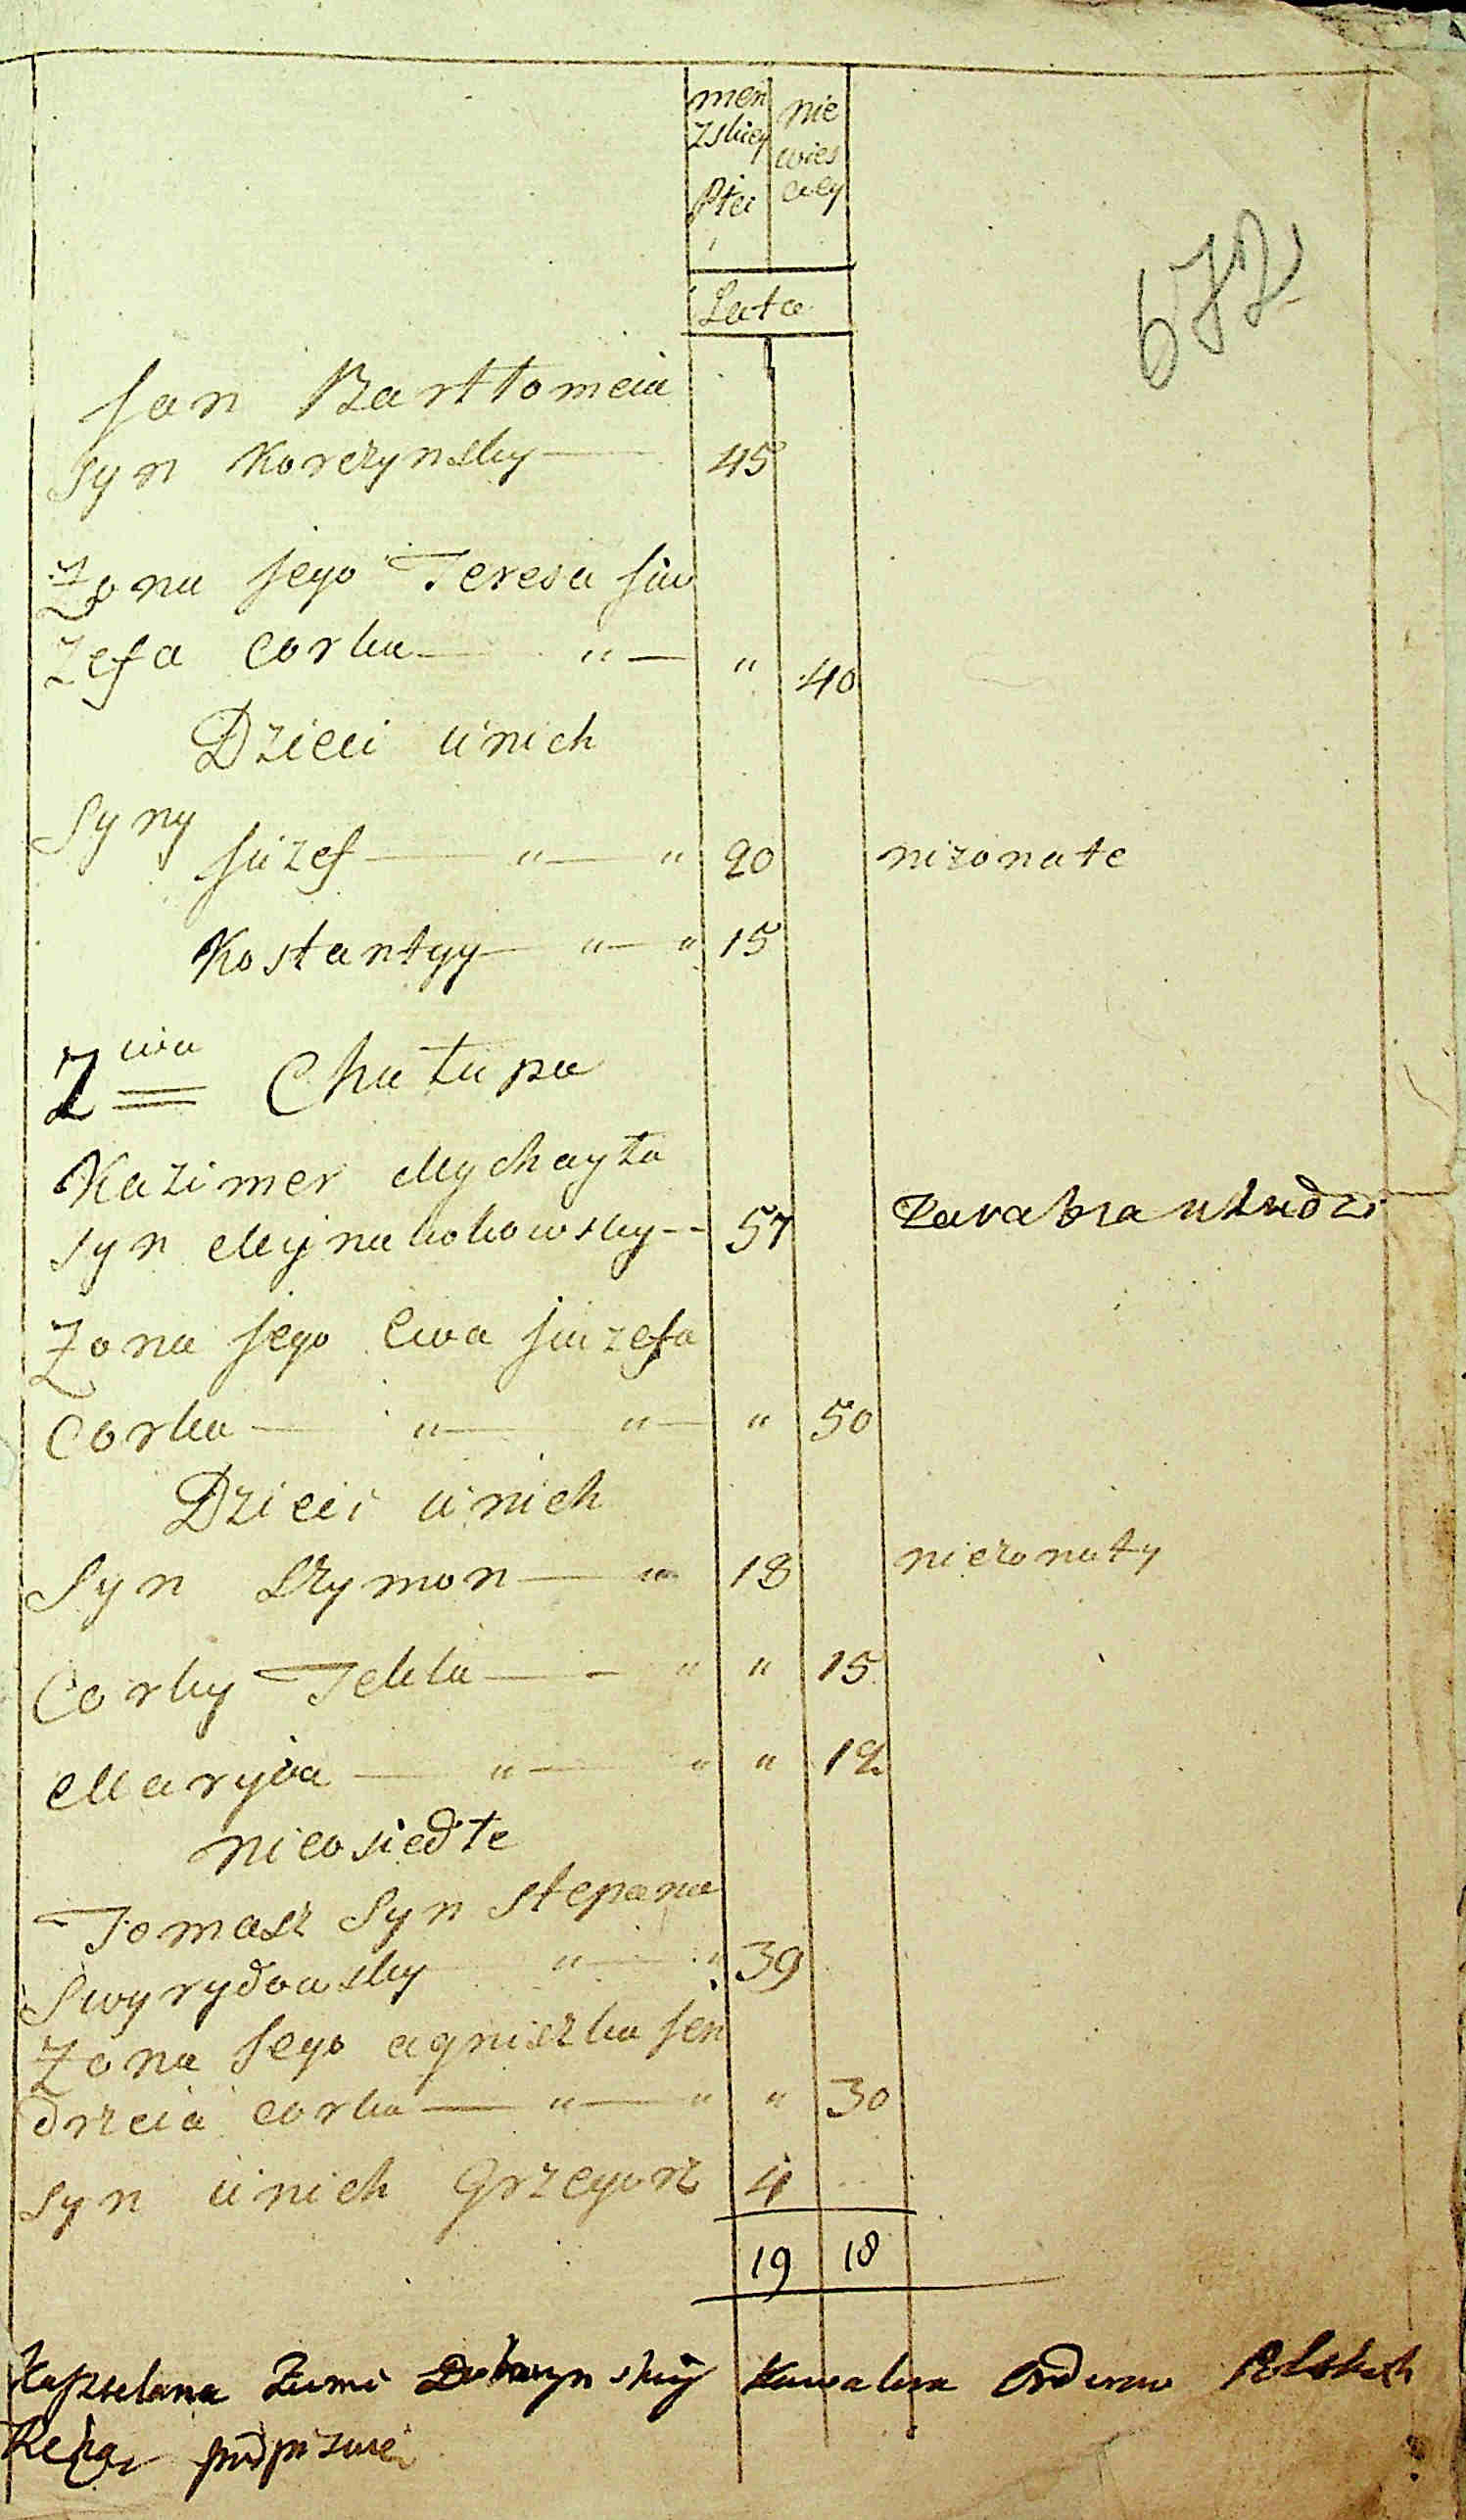 men nie
zskiey wies
Płci ciey
Lata
672
Jan Bartłomeia
Syn Korczynsky 45
Zona Jego Teresa Jiu
zefa Corka " " 40
Dzieci u nich
Syny
Jiuzef " " 20 nizonate
Kostantyy " " 15
2 wa Chałupa
Kazimer Mychayła
Syn Mynakowsky 57 Zarabia u Ludzi
Zona Jego Ewa Jiuzefa
Corka " " " 50
Dzieci u nich
Syn Szymon " 18 niezonaty
Corky Tekla " " 15
Maryia " " " 12
nieosiedłe
Tomasz Syn Stepana
Swyrydowsky " " 39
Zona Jego agniszka Jen
drzeia corka " " " 30
Syn u nich Grzegorz 4
19 18
Kasztelana Ziemi Dobrzynskiy Kawalera Orderow Polskich
Ręką podpisuie